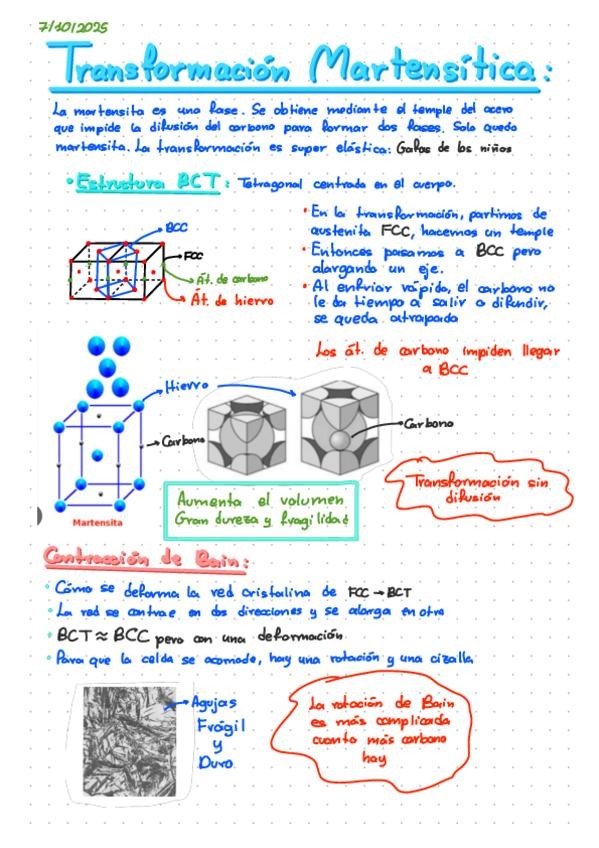 7/10/2025
Transformación Martensítica:
La martensita es una fase. Se obtiene mediante el temple del acero
que impide la difusión del carbono para formar dos fases. Solo queda
martensita. La transformación es super elástica: Gafas de los niños
• Estructura BCT: Tetragonal centrada en el cuerpo.
BCC
FCC
Át. de carbono
Át. de hierro
• En la transformación, partimos de
austenita FCC, hacemos un temple
• Entonces pasamos a BCC pero
alargando un eje.
• Al enfriar rápido, el carbono no
le da tiempo a salir o difundir,
se queda atrapado
Los át. de carbono impiden llegar
a BCC
Hierro
Carbono
Carbono
Martensita
Aumenta el volumen
Gran dureza y fragilidad
Transformación sin
difusión
Contracción de Bain:
• Cómo se deforma la red cristalina de FCC → BCT
• La red se contrae en dos direcciones y se alarga en otra
• BCT ≈ BCC pero con una deformación
• Para que la celda se acomode, hay una rotación y una cizalla
Agujas
Frágil
y
Duro
La rotación de Bain
es más complicada
cuanto más carbono
hay